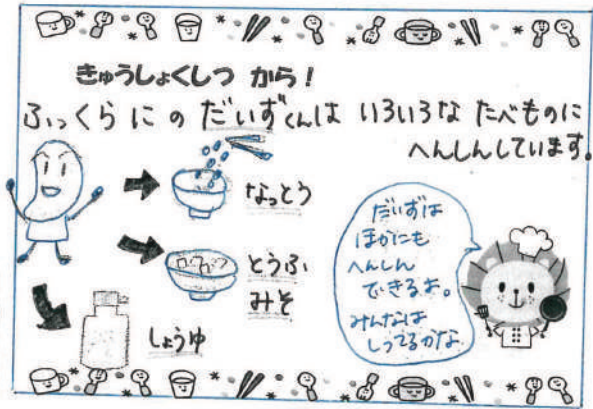 きゅうしょくしつ から!
ふっくらにの だいずくんは いろいろな たべものに
へんしんしています。
なっとう
とうふ
みそ
しょうゆ
だいずは
ほかにも
へんしん
できるよ。
みんなは
しってるかな